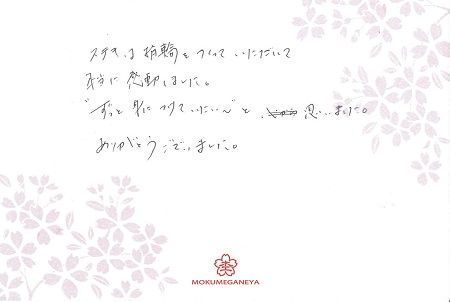 ステキな指輪をつくっていただいて
本当に感動しました。
"ずっと身につけていたい〜"と 思いました。
ありがとうございました。
MOKUMEGANEYA